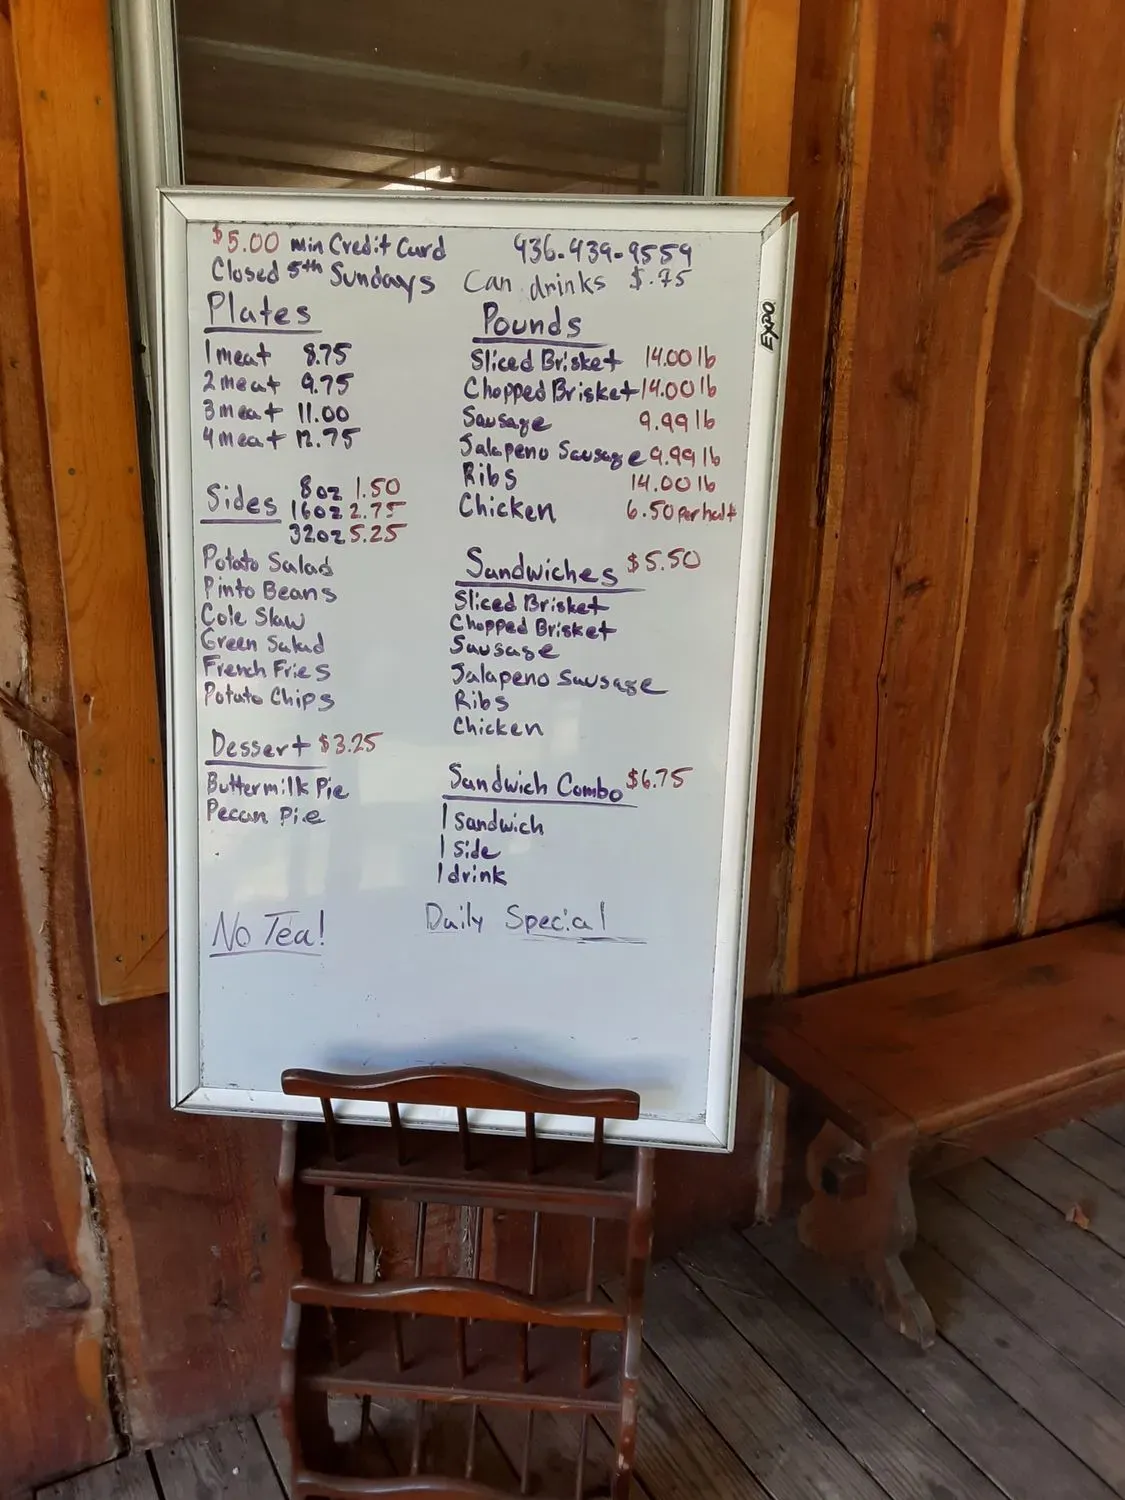 $5.00 min Credit Card
Closed 5th Sundays
936-439-9559
Can drinks $.75
Plates
1 meat 8.75
2 meat 9.75
3 meat 11.00
4 meat 12.75
Sides
8oz 1.50
16oz 2.75
32oz 5.25
Potato Salad
Pinto Beans
Cole Slaw
Green Salad
French Fries
Potato Chips
Dessert $3.25
Buttermilk Pie
Pecan Pie
No Tea!
Pounds
Sliced Brisket 14.00 lb
Chopped Brisket 14.00 lb
Sausage 9.99 lb
Jalapeno Sausage 9.99 lb
Ribs 14.00 lb
Chicken 6.50 per half
Sandwiches $5.50
Sliced Brisket
Chopped Brisket
Sausage
Jalapeno Sausage
Ribs
Chicken
Sandwich Combo $6.75
1 Sandwich
1 Side
1 drink
Daily Special
EXPO